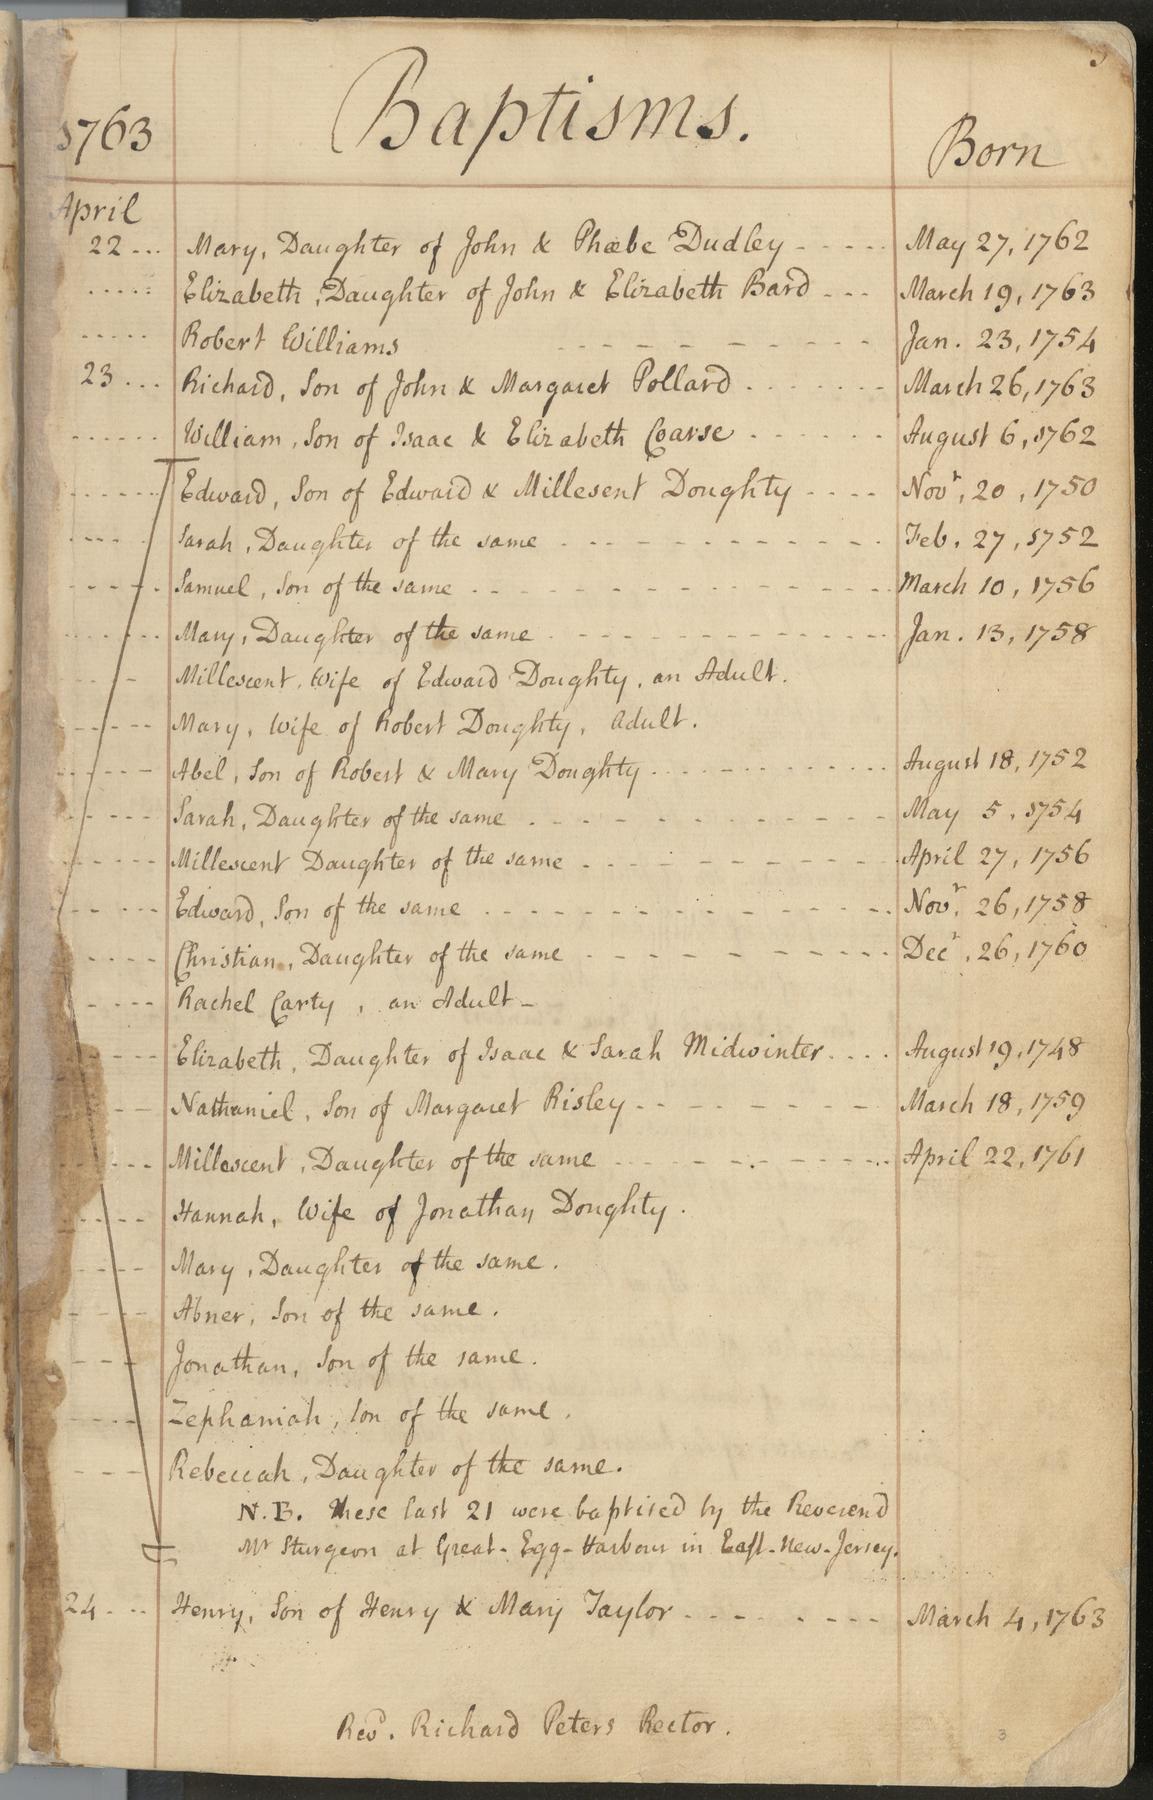 3
1763 Baptisms. Born
April
22 ... Mary, Daughter of John & Phæbe Dudley - - - - - May 27, 1762
..... Elizabeth, Daughter of John & Elizabeth Bard - - - March 19, 1763
..... Robert Williams - - - - - - - - Jan. 23, 1754
23 ... Richard, Son of John & Margaret Pollard - - - - - - March 26, 1763
...... William, Son of Isaac & Elizabeth Coarse - - - - - - August 6, 1762
...... Edward, Son of Edward & Millesent Doughty - - - - Novr, 20, 1750
- - - - Sarah, Daughter of the same - - - - - - - - - - - Feb. 27, 1752
- - - - - Samuel, Son of the same - - - - - - - - - - - - March 10, 1756
- - - - - Mary, Daughter of the same - - - - - - - - - - - Jan. 13, 1758
- - - Millescent, Wife of Edward Doughty, an Adult.
- - - - - Mary, Wife of Robert Doughty, Adult.
- - - - - Abel, Son of Robert & Mary Doughty - - - - - - - - August 18, 1752
- - - - - Sarah, Daughter of the same - - - - - - - - - - May 5, 1754
- - - - - Millescent Daughter of the same - - - - - - - - - April 27, 1756
- - - - - Edward, Son of the same - - - - - - - - - - - - Novr. 26, 1758
- - - - Christian, Daughter of the same - - - - - - - - - Decr, 26, 1760
- - - - Rachel Carty, an Adult -
- - - - Elizabeth, Daughter of Isaac & Sarah Midwinter - - - - August 19, 1748
- - Nathaniel, Son of Margaret Risley - - - - - - - March 18, 1759
- - - - Millescent, Daughter of the same - - - - - - - - - April 22, 1761
- - - - Hannah, Wife of Jonathan Doughty.
- - - - Mary, Daughter of the same.
- - - - Abner, Son of the same.
- - - Jonathan, Son of the same.
- - - - Zephaniah, Son of the same.
- - - Rebeccah, Daughter of the same.
N.B. These last 21 were baptised by the Reverend
Mr Sturgeon at Great-Egg-Harbour in East-New-Jersey.
24 - - - Henry, Son of Henry & Mary Taylor - - - - - - - - March 4, 1763
Revd. Richard Peters Rector.
3